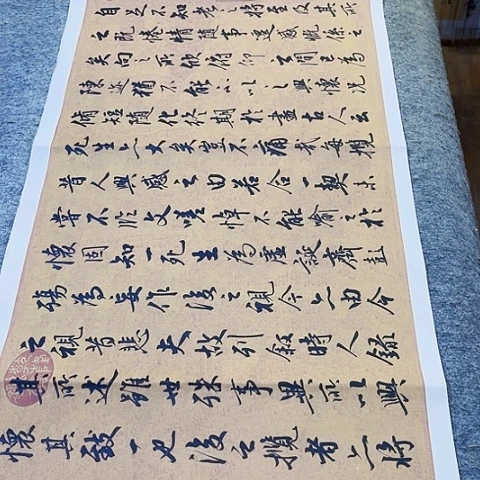 自足不知老之將至及其所
之既惓情隨事遷感慨係之
矣向之所欣俯仰之間已為
陳迹猶不能不以之興懷況
脩短隨化終期於盡古人云
死生亦大矣豈不痛哉每攬
昔人興感之由若合一契未
嘗不臨文嗟悼不能喻之於
懷固知一死生為虛誕齊彭
殤為妄作後之視今亦由今
之視昔悲夫故列敘時人錄
其所述雖世殊事異所以興
懷其致一也後之攬者亦將